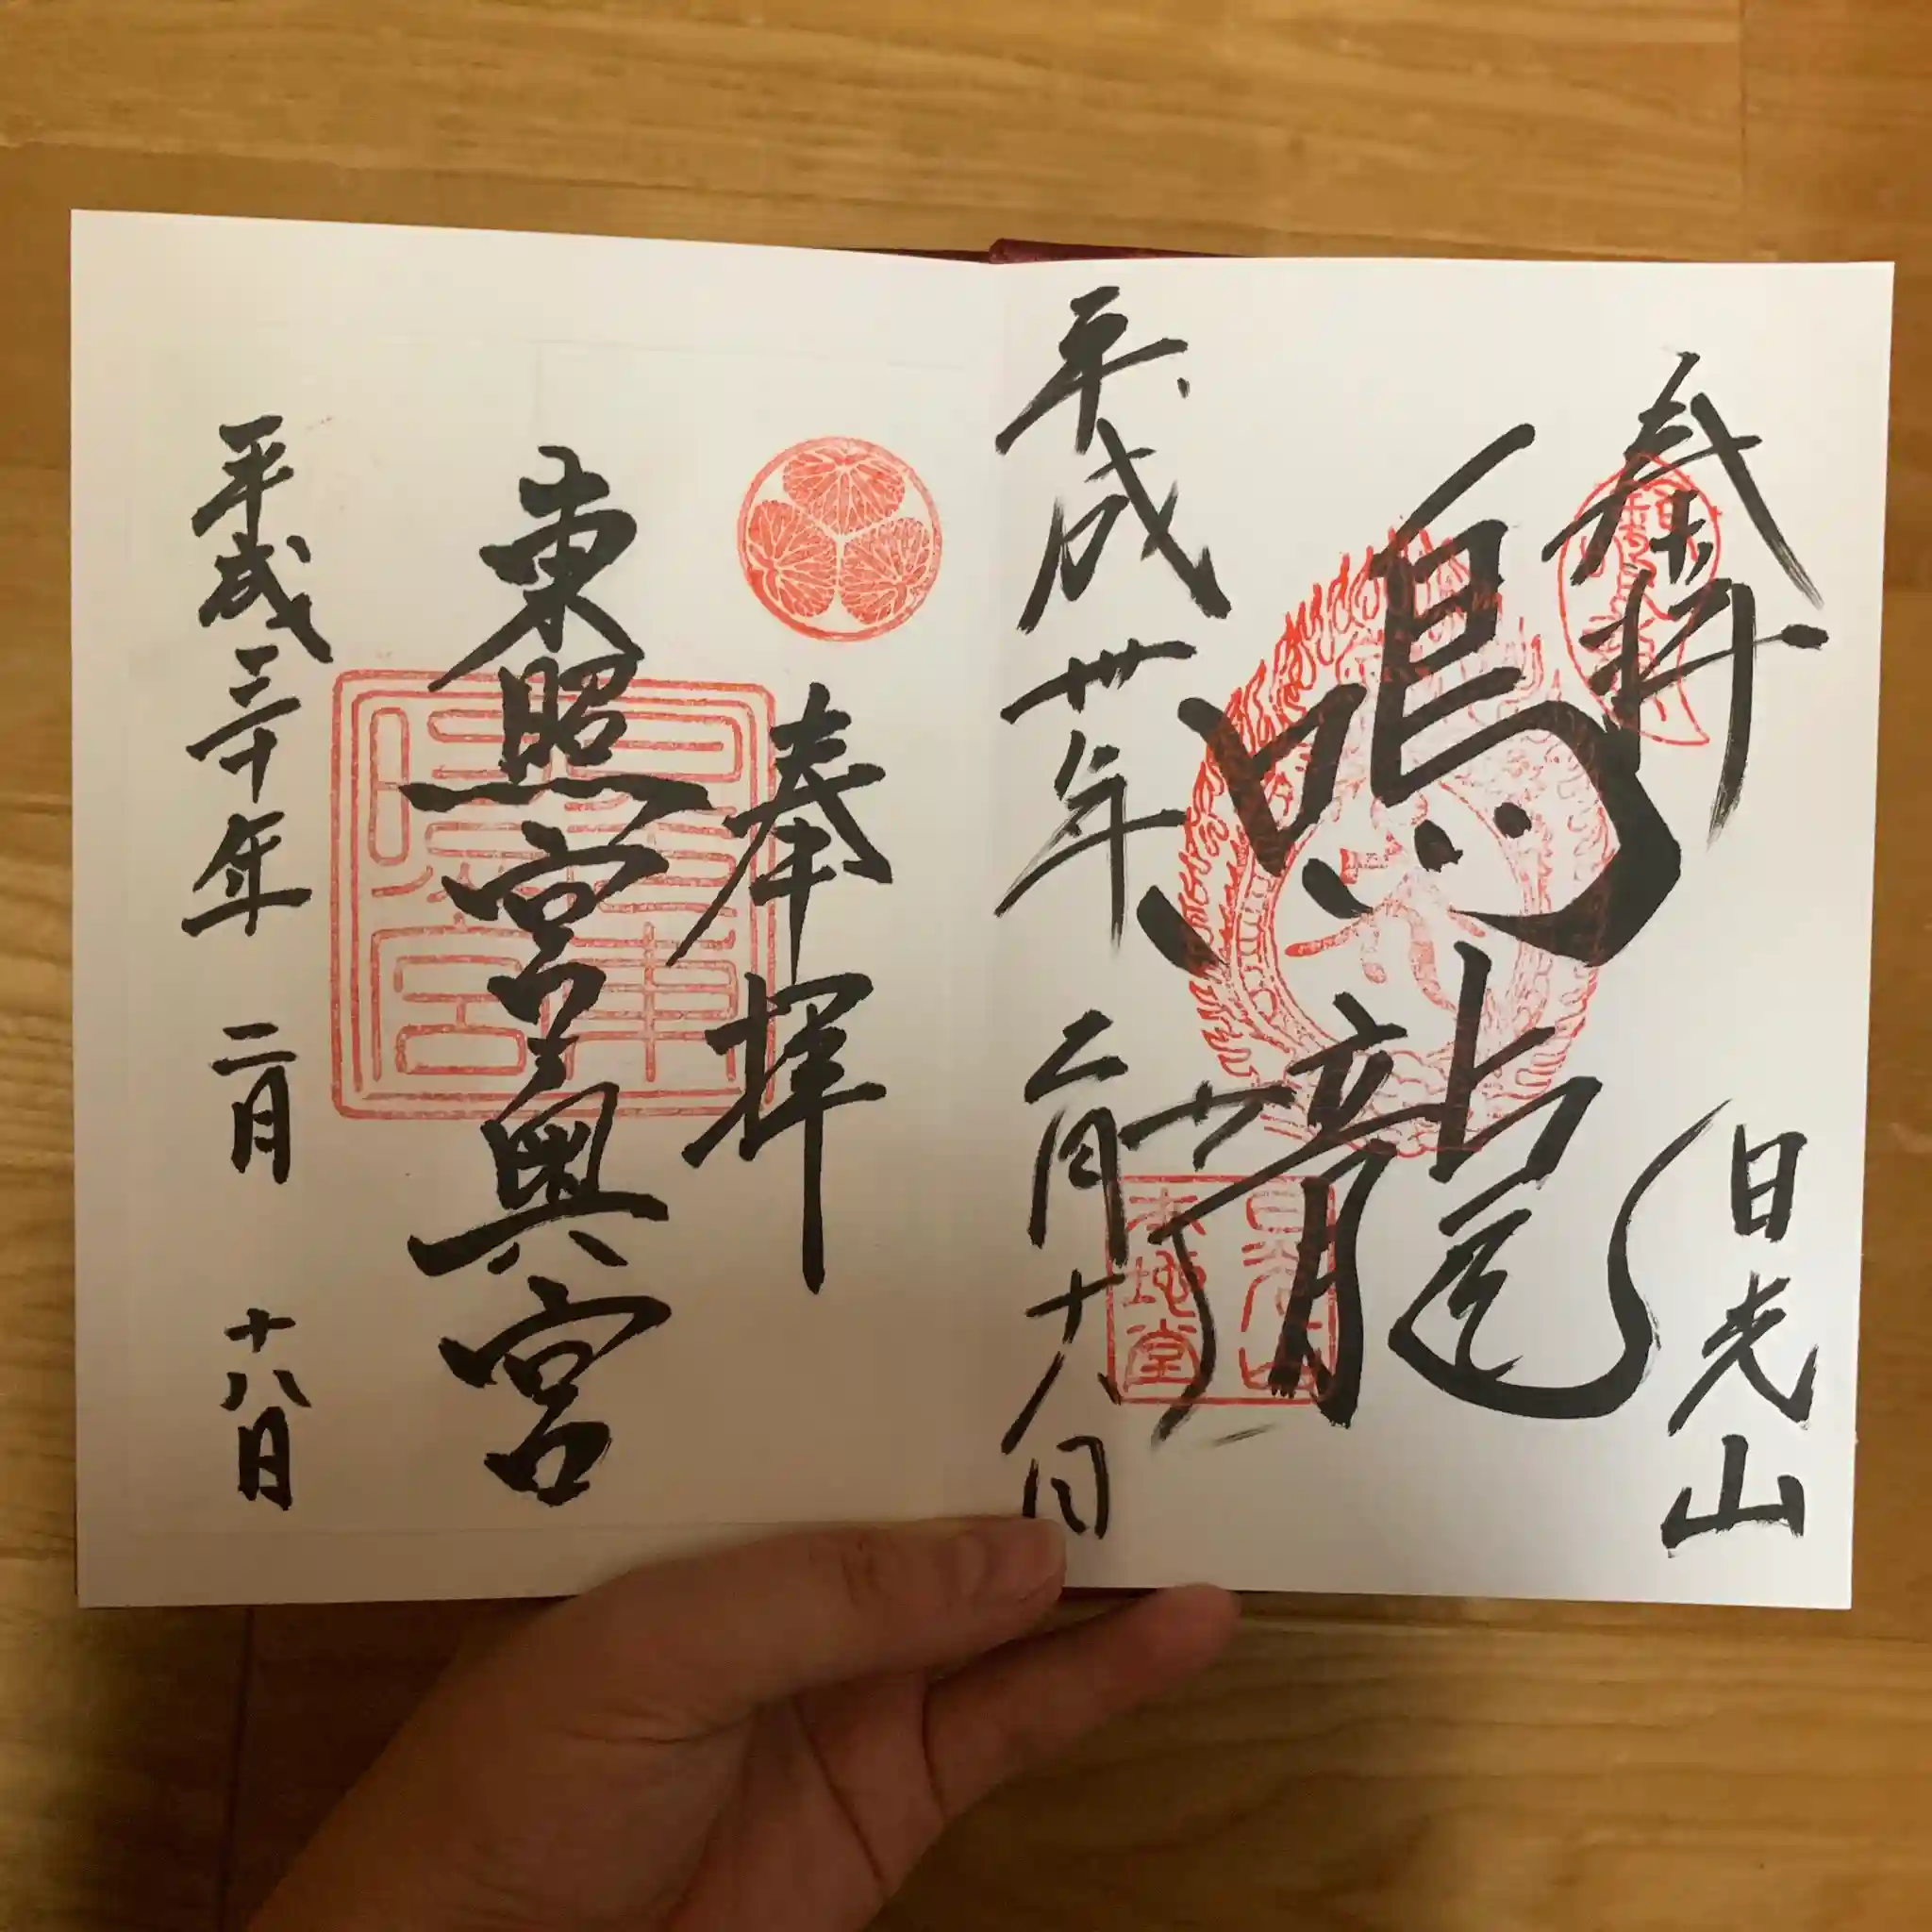 奉拝
日光山
鳴龍
平成卅年二月十八日
本地堂
奉拝
東照宮奥宮
平成三十年二月十八日